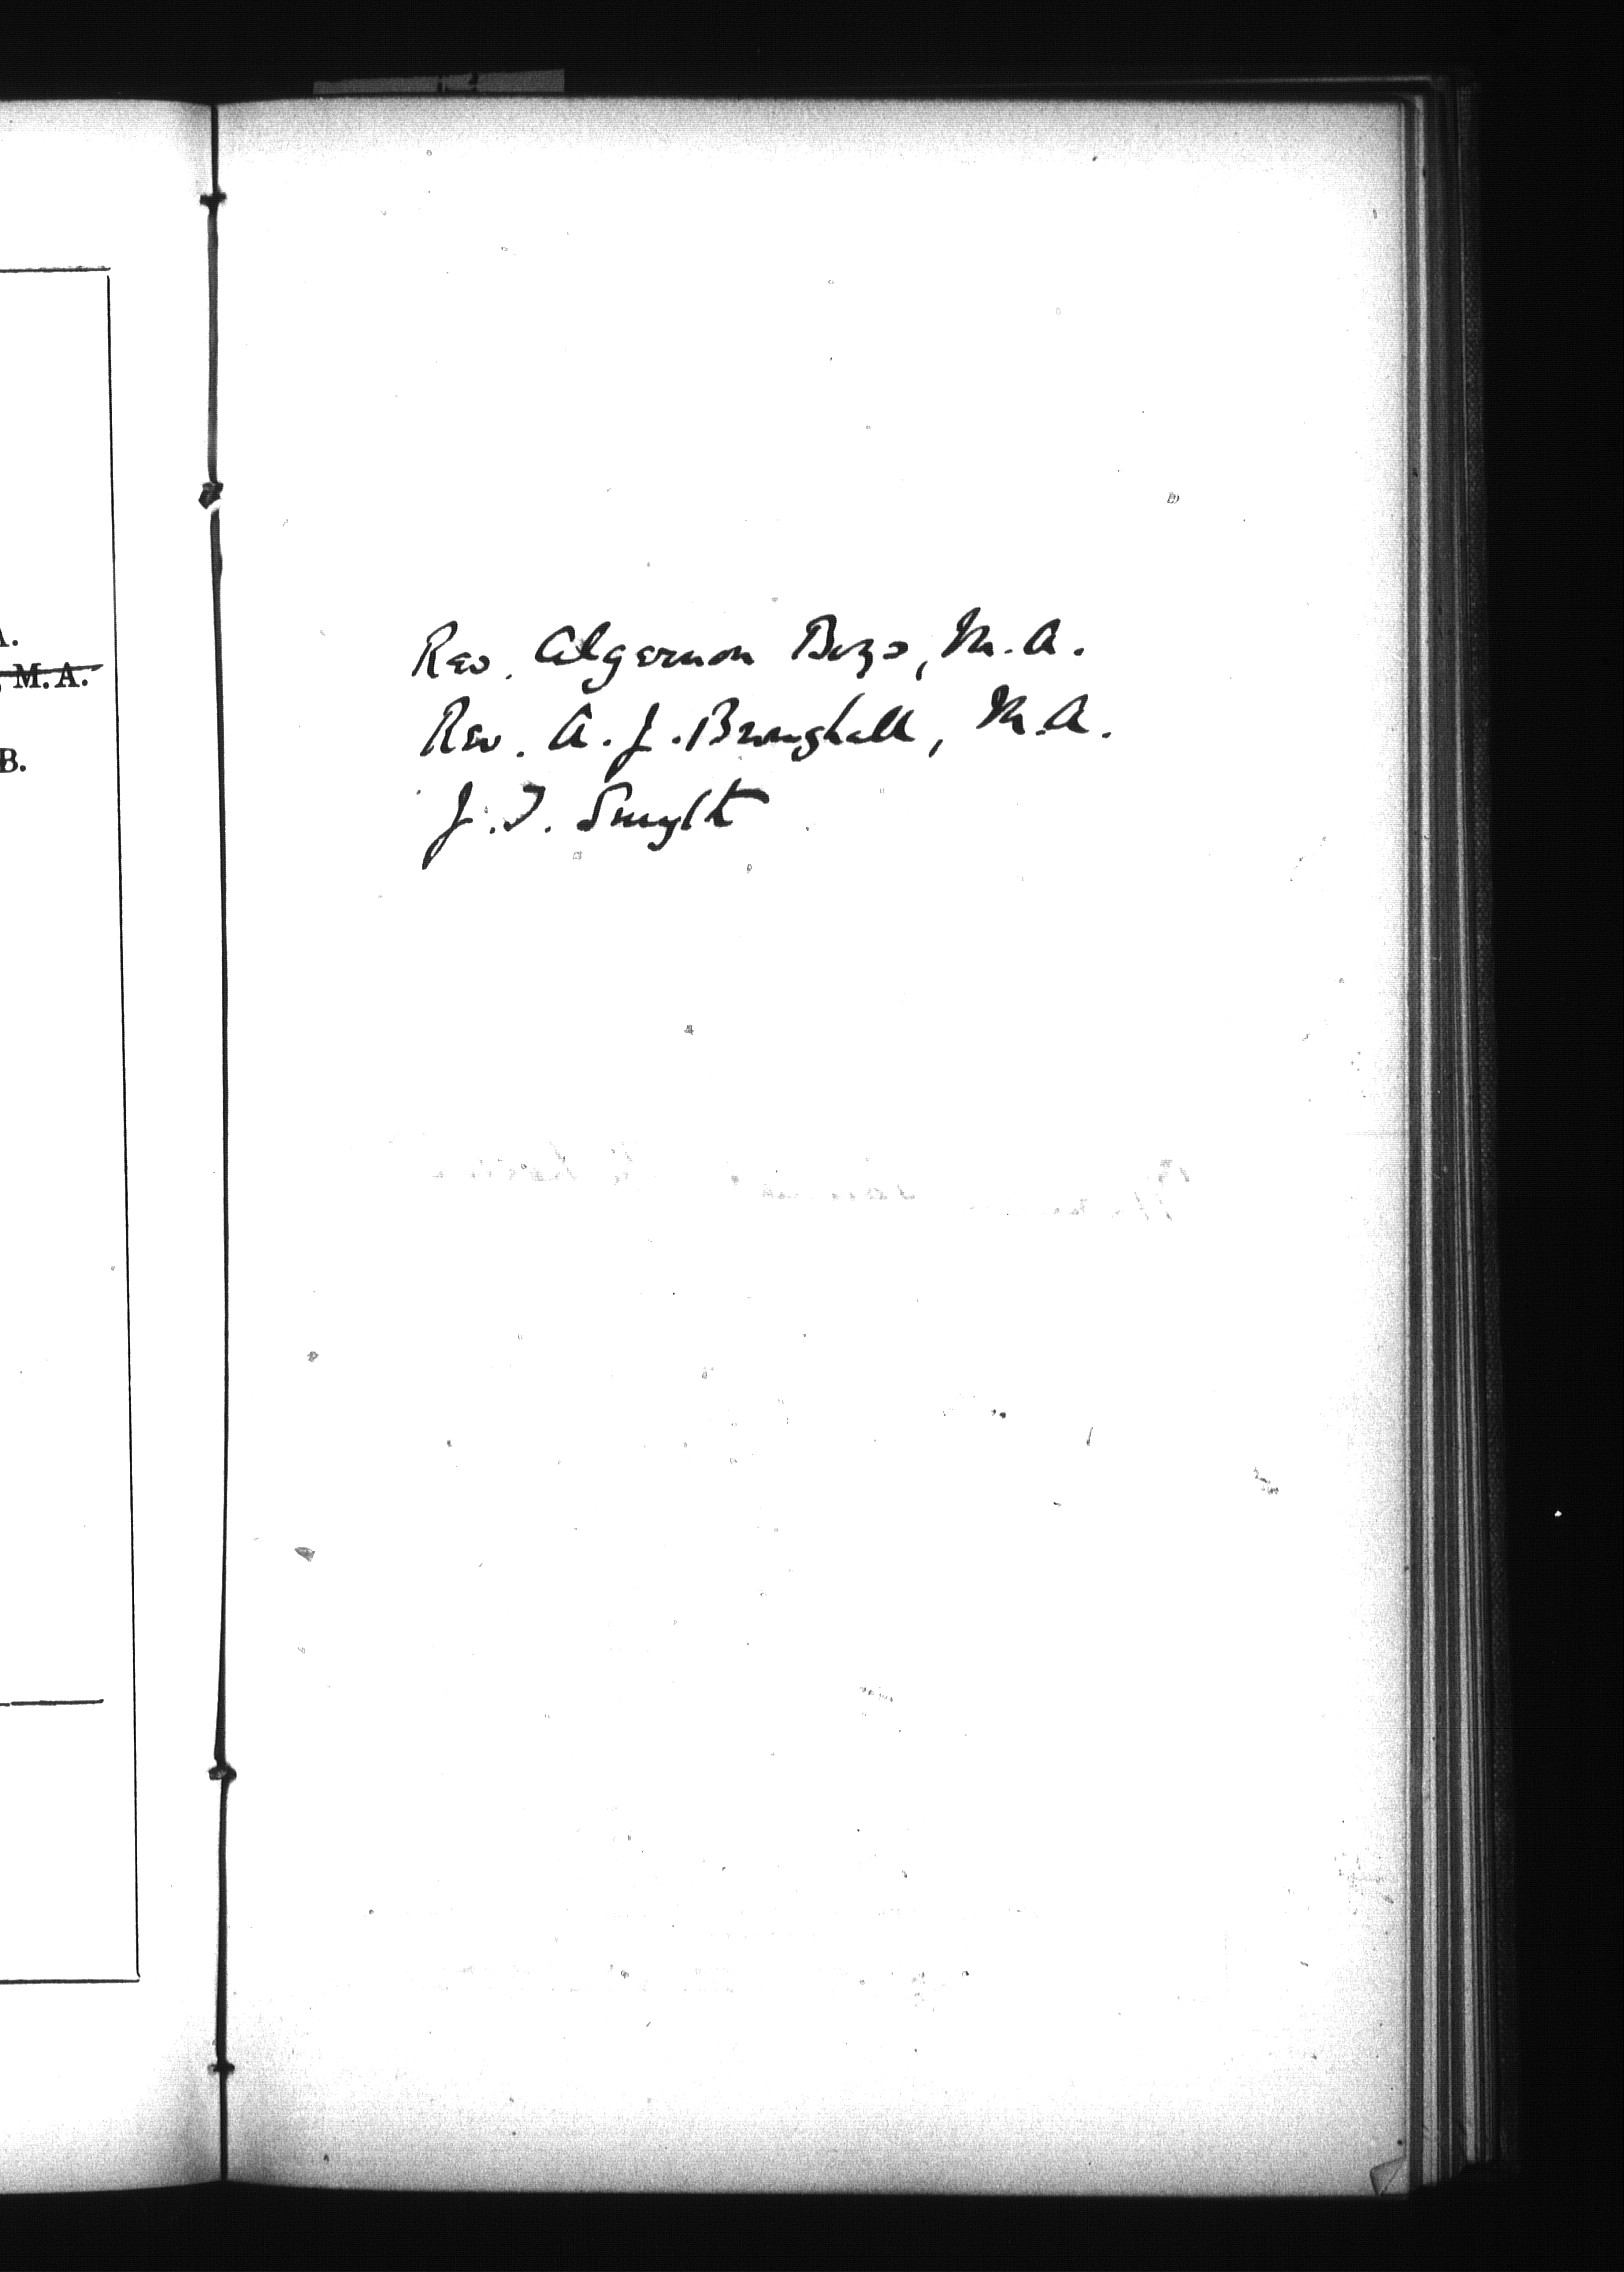 A.
M.A.
B.
Rev. Algernon Boys, M.A.
Rev. A. J. Broughall, M.A.
J. T. Smyth